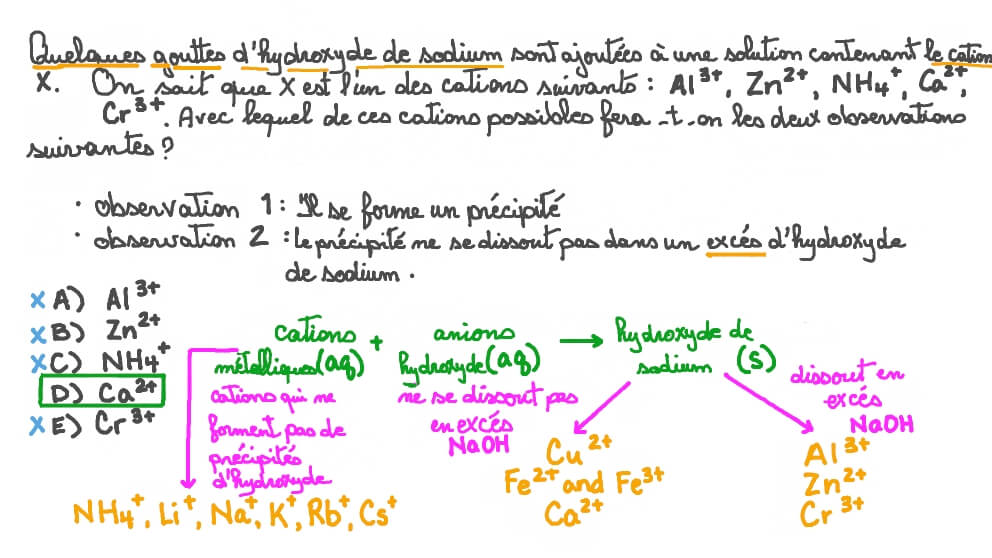 Quelques gouttes d'hydroxyde de sodium sont ajoutées à une solution contenant le cation
X. On sait que X est l'un des cations suivants : Al³⁺, Zn²⁺, NH₄⁺, Ca²⁺,
Cr³⁺. Avec lequel de ces cations possibles fera-t-on les deux observations
suivantes ?
· observation 1 : Il se forme un précipité
· observation 2 : le précipité ne se dissout pas dans un excés d'hydroxyde
de sodium.
x A) Al³⁺
x B) Zn²⁺
x C) NH₄⁺
D) Ca²⁺
x E) Cr³⁺
cations métalliques (aq) + anions hydroxyde (aq) → hydroxyde de sodium (s)
cations qui ne
forment pas de
précipités
d'hydroxyde
NH₄⁺, Li⁺, Na⁺, K⁺, Rb⁺, Cs⁺
ne se dissout pas
en excés
NaOH
Cu²⁺
Fe²⁺ and Fe³⁺
Ca²⁺
dissout en
excés
NaOH
Al³⁺
Zn²⁺
Cr³⁺